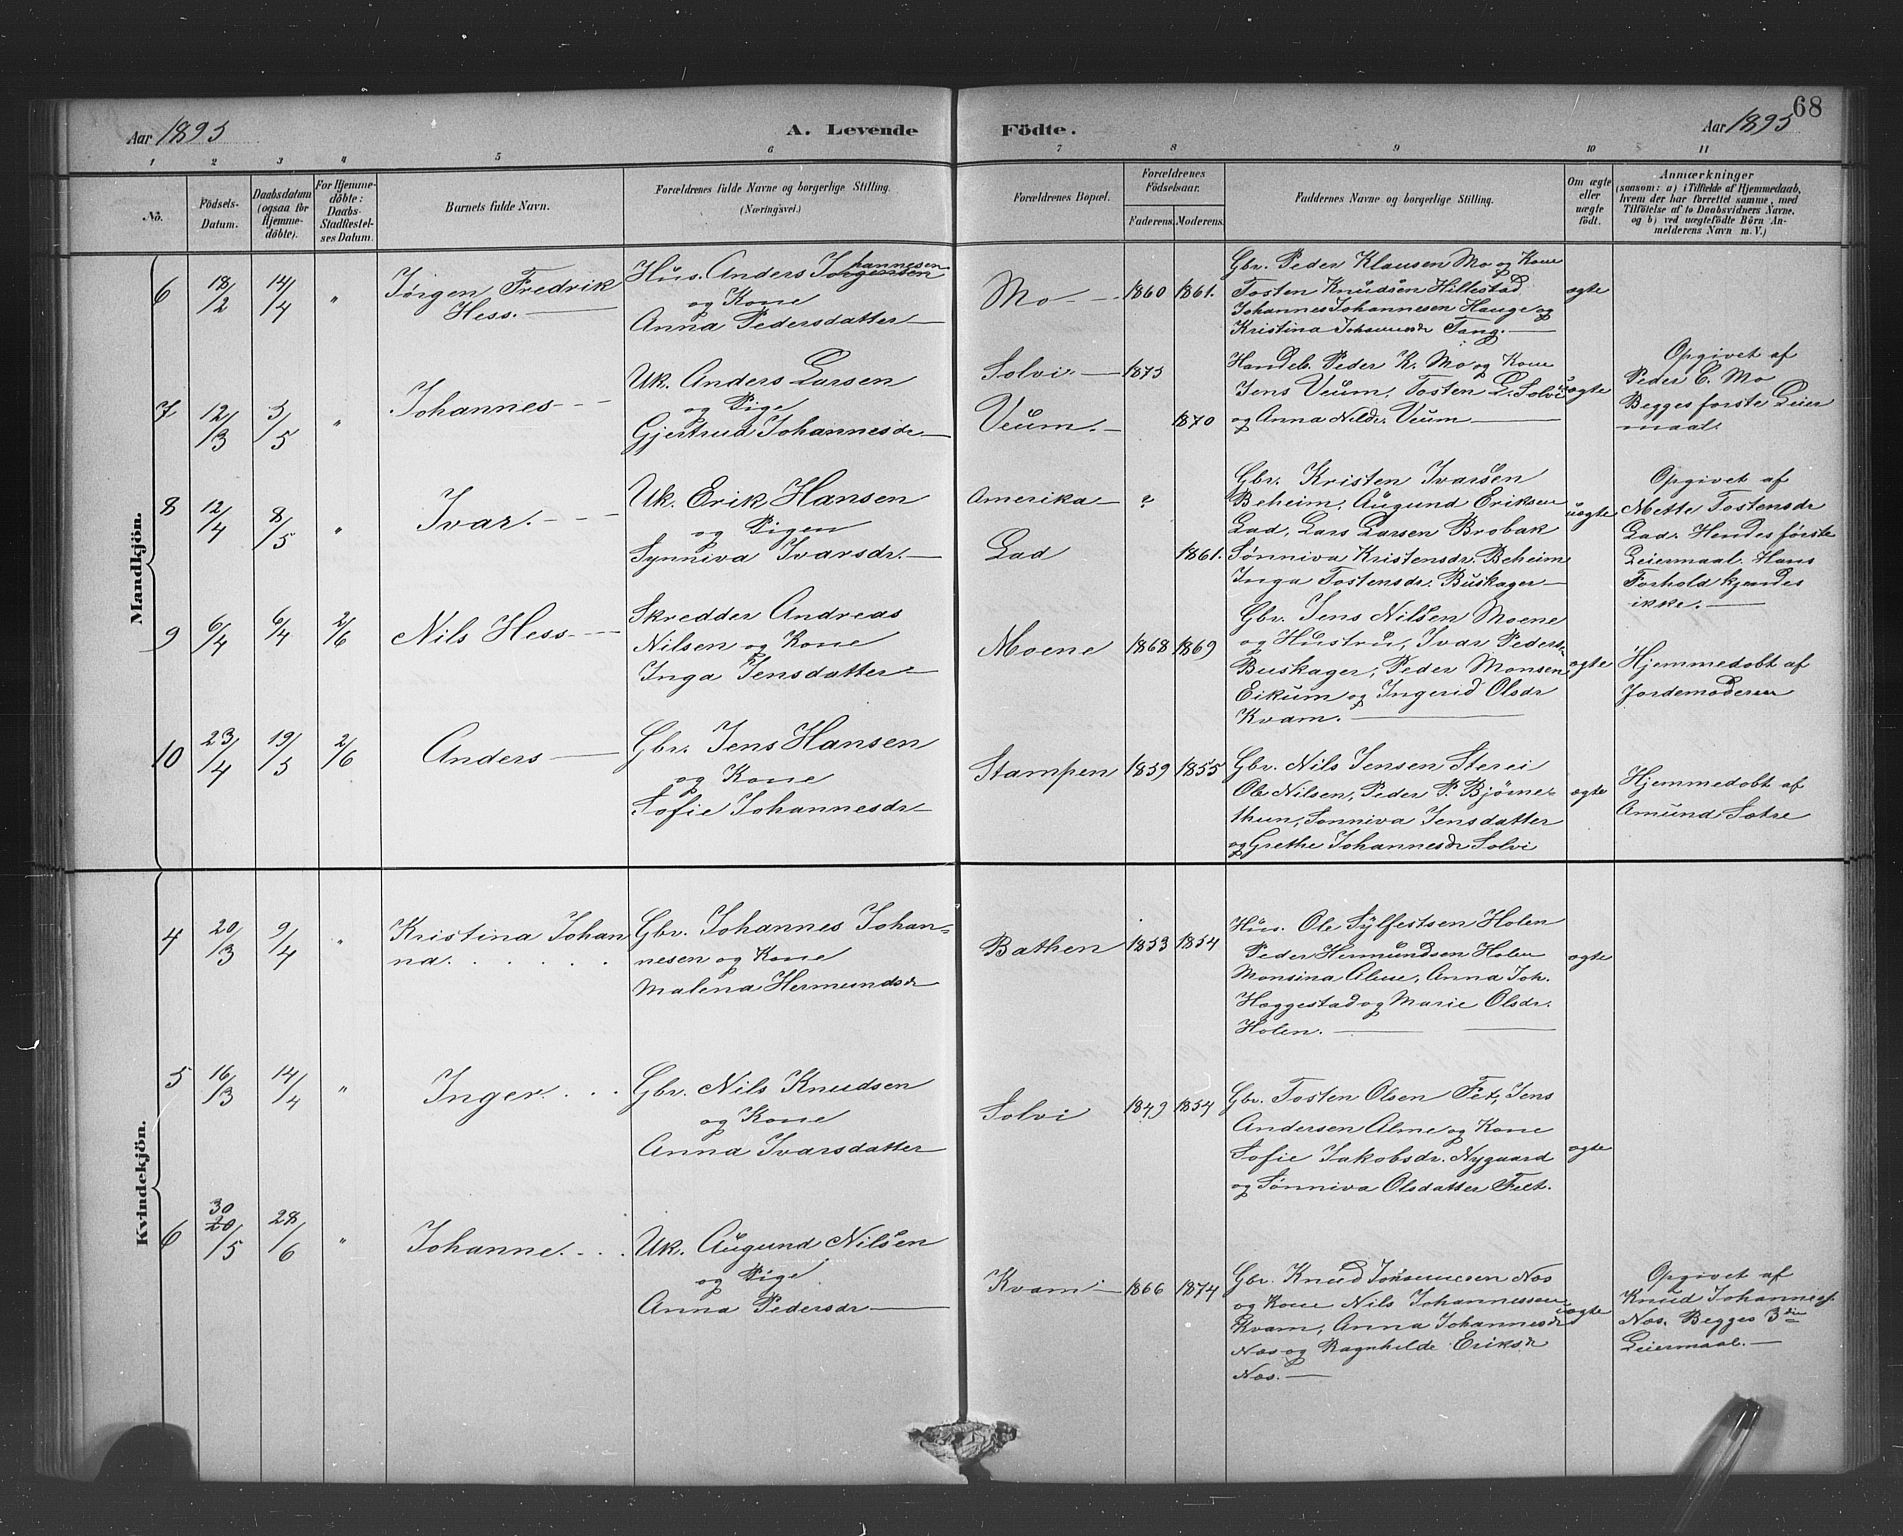 68
Aar 1895
A. Levende
Födte.
Aar 1895
1 2 3 4 5 6 7 8 9 10 11
No.
Födsels-
Datum.
Daabsdatum
(ogsaa for
Hjemme-
döbte).
For Hjemme-
döbte:
Daabs-
Stadfæstel-
ses Datum.
Barnets fulde Navn.
Forældrenes fulde Navne og borgerlige Stilling.
(Næringsvei.)
Forældrenes Bopæl.
Forældrenes
Födselsaar.
Faderens. Moderens.
Faddernes Navne og borgerlige Stilling.
Om ægte
eller
uægte
födt.
Anmærkninger
(saasom: a) i Tilfælde af Hjemmedaab,
hvem der har forrettet samme, med
Tilföielse af to Daabsvidners Navne,
og b) ved uægtefödte Börn An-
melderens Navn m. V.)
Mandkjön.
6 18/2 14/4 "
Jörgen Fredrik
Hess.
Hus. Anders Johannesen
og Kone
Anna Pedersdatter
Mo 1860 1861.
Gbr. Peder Klausen Mo og Kone
Tosten Knudsen Hillestad
Johannes Johannesen Hauge og
Kristina Johannesdr Tang.
ægte
7 12/3 5/5 "
Johannes
Uk. Anders Larsen
og Pige
Gjertrud Johannesdr
Solvi. 1875
Veum. 1870
Handelb. Peder K. Mo og Kone
Jens Veum, Tosten L. Solvi
og Anna Nilsdr. Veum
uægte
Opgivet af
Peder C. Mo
Begges forste Leier
maal.
8 12/4 8/5 "
Ivar.
Uk. Erik Hansen
og Pigen
Synniva Ivarsdr.
Amerika ?
Lad 1861.
Gbr. Kristen Ivarsen
Beheim, Augund Eriksen
Lad, Lars Larsen Brobak
Sønniva Kristensdr. Beheim
Inga Tostensdr. Buskager
uægte
Opgivet af
Mette Tostensdr
Lad. Hendes første
Leiermaal. Hans
Forhold kjendes
ikke.
9 6/4 6/4 2/6
Nils Hess
Skredder Andreas
Nilsen og Kone
Inga Jensdatter
Moene 1868 1869
Gbr. Jens Nilsen Moene
og Hustru, Ivar Peders.
Buskager, Peder Monsen
Eikum og Ingerid Olsdr
Kvam.
ægte
Hjemmedobt af
Jordemoderen
10 23/4 19/5 2/6
Anders
Gbr. Jens Hansen
og Kone
Sofie Johannesdr
Stampen 1859 1855
Gbr. Nils Jensen Sterei
Ole Nilsen, Peder P. Bjørne-
thun, Sonniva Jensdatter
og Grethe Johannesdr Solvi
ægte
Hjemmedobt af
Amund Sætre
Kvindekjön.
4 20/3 9/4 "
Kristina Johan
na.
Gbr. Johannes Johan-
nesen og Kone
Malena Hermundsdr
Bathen 1853 1854
Hus. Ole Sylfestsen Holen
Peder Hermundsen Holen
Monsina Alme, Anna Joh.
Hæggestad og Marie Olsdr.
Holen.
ægte
5 16/3 14/4 "
Inger.
Gbr. Nils Knudsen
og Kone
Anna Ivarsdatter
Solvi 1849 1854
Gbr. Tosten Olsen Fet, Jens
Andersen Alme og Kone
Sofie Jakobsdr. Nygaard
og Sønniva Olsdatter Felt.
ægte
6 30 20/5 28/6 "
Johanne.
Uk. Augund Nilsen
og Pige
Anna Pedersdr
Kvam 1866 1874
Gbr. Knud Johannesen Næs
og Kone Nils Johannessen
Kvam, Anna Johannesdr
Næs og Ragnhilde Eriksdr
Næs.
uægte
Opgivet af
Knud Johannes.
Næs. Begges 3die
Leiermaal.